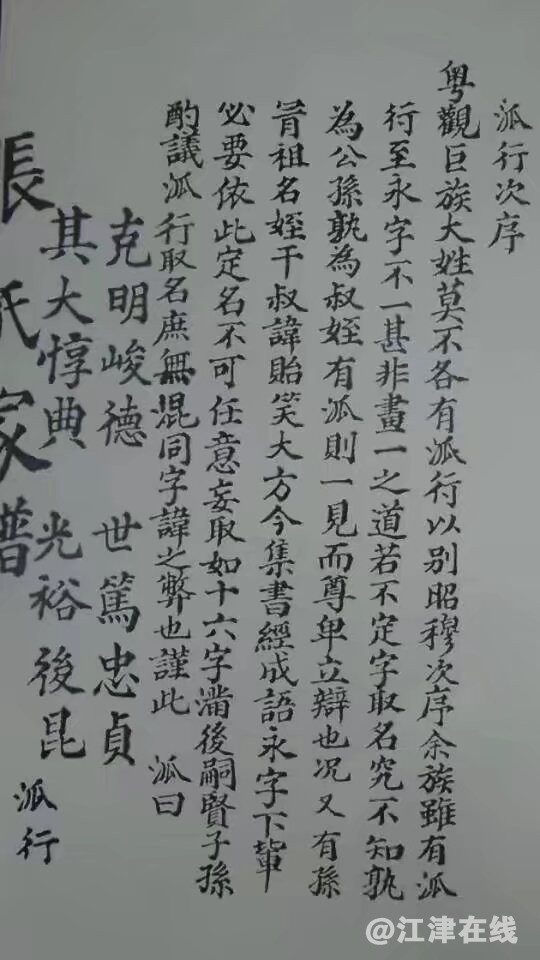 派行次序
粵觀巨族大姓莫不各有派行以別昭穆次序余族雖有派
行至永字不一甚非畫一之道若不定字取名究不知孰
為公孫孰為叔姪有派則一見而尊卑立辯也况又有孫
冐祖名姪干叔諱貽笑大方今集書經成語永字下輩
必要依此定名不可任意妄取如十六字滿後嗣賢子孫
酌議派行取名庶無混同字諱之弊也謹此 派曰
克明峻德 世篤忠貞
其大惇典 光裕後昆 派行
張氏家譜
@江津在线